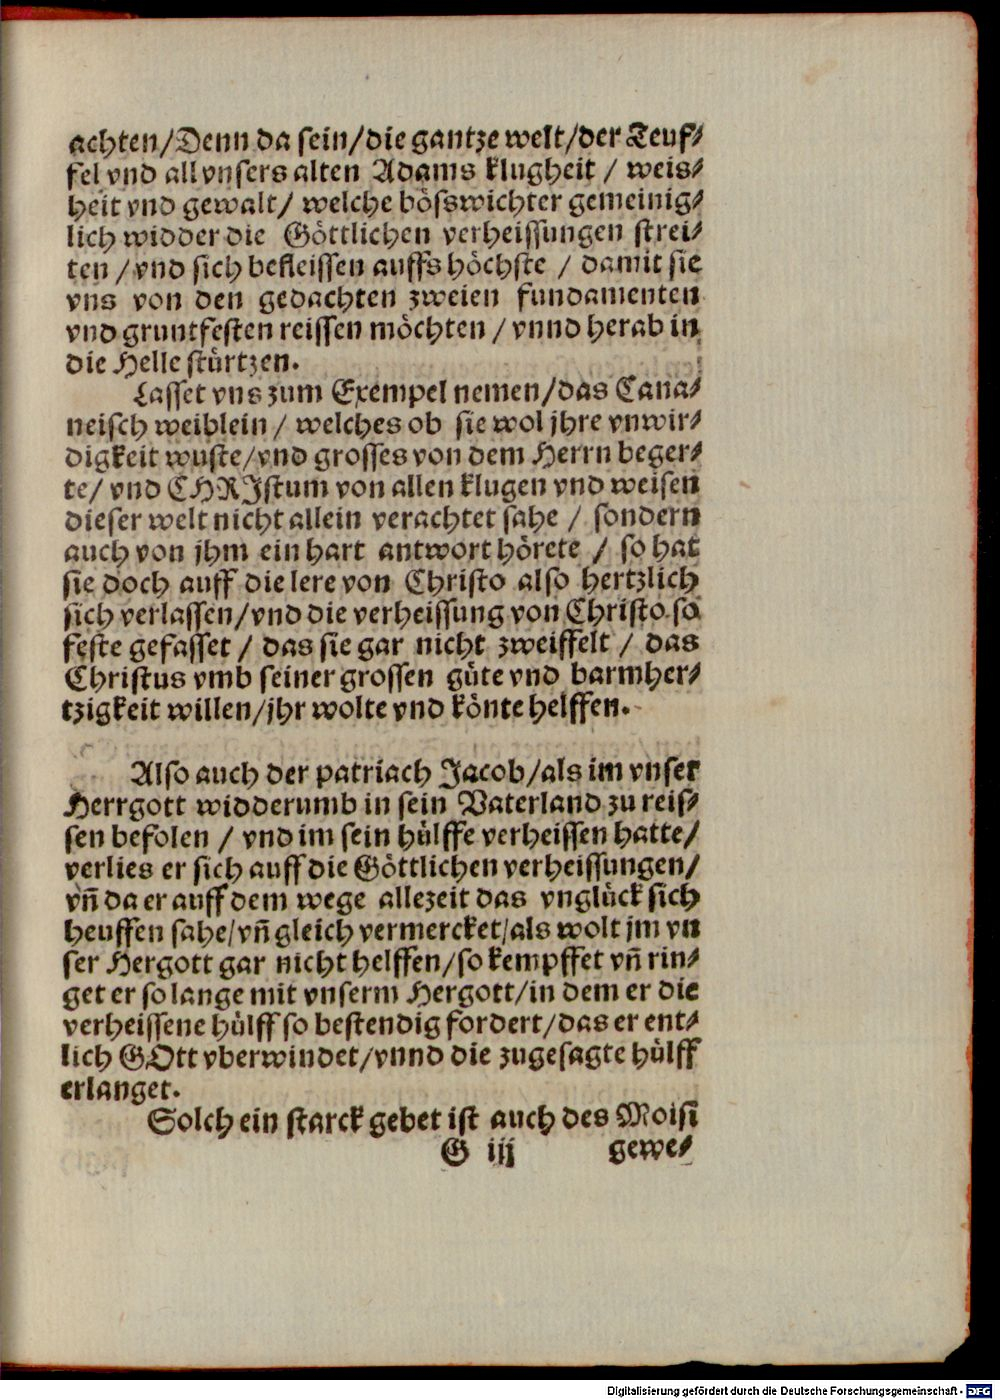 achten/Denn da sein/die gantze welt/der Teuf⸗
fel vnd all vnsers alten Adams klugheit / weis⸗
heit vnd gewalt/ welche böswichter gemeinig⸗
lich widder die Göttlichen verheissungen strei⸗
ten /vnd sich befleissen auffs höchste / damit sie
vns von den gedachten zweien fundamenten
vnd gruntfesten reissen möchten / vnnd herab in
die Helle stürtzen.
Lasset vns zum Exempel nemen/das Cana⸗
neisch weiblein / welches ob sie wol jhre vnwir⸗
digkeit wuste/vnd grosses von dem Herrn beger⸗
te/ vnd CHRJstum von allen klugen vnd weisen
dieser welt nicht allein verachtet sahe / sondern
auch von jhm ein hart antwort hörete / so hat
sie doch auff die lere von Christo also hertzlich
sich verlassen/vnd die verheissung von Christo so
feste gefasset / das sie gar nicht zweiffelt / das
Christus vmb seiner grossen güte vnd barmher⸗
tzigkeit willen/jhr wolte vnd könte helffen.
Also auch der patriach Jacob/als im vnser
Herrgott widderumb in sein Vaterland zu reis⸗
sen befolen / vnd im sein hülffe verheissen hatte/
verlies er sich auff die Göttlichen verheissungen/
vn̄ da er auff dem wege allezeit das vnglück sich
heuffen sahe/vn̄ gleich vermercket/als wolt jm vn
ser Hergott gar nicht helffen/so kempffet vn̄ rin⸗
get er so lange mit vnserm Hergott/in dem er die
verheissene hülff so bestendig fordert/das er ent⸗
lich GOtt vberwindet/vnnd die zugesagte hülff
erlanget.
Solch ein starck gebet ist auch des Moisi
G iij gewe⸗
Digitalisierung gefördert durch die Deutsche Forschungsgemeinschaft - DFG